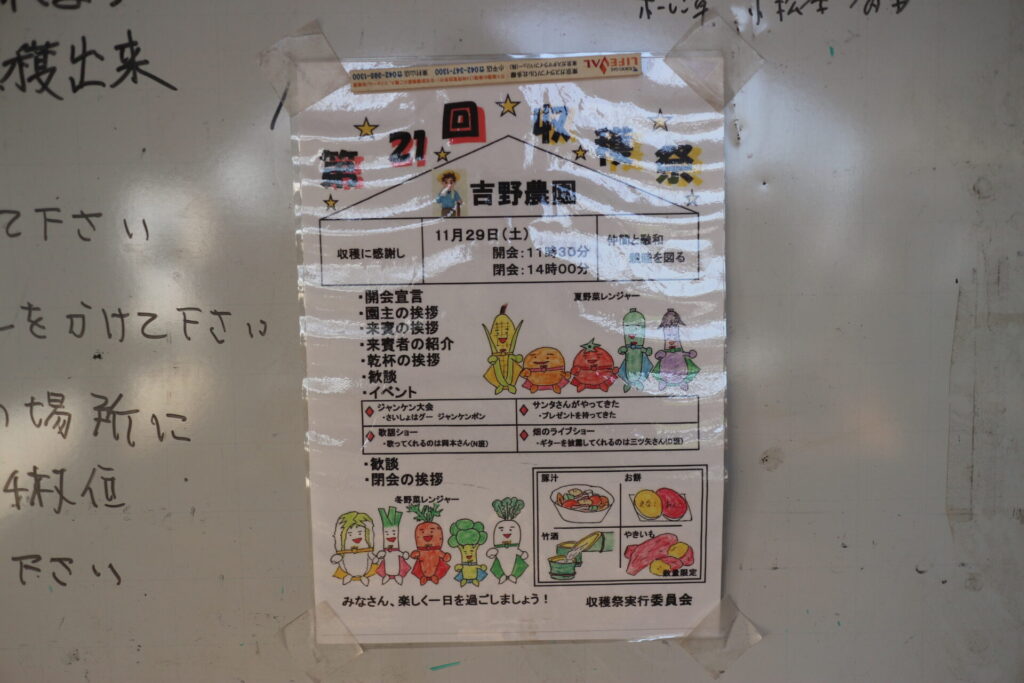 穫出来
て下さい
をかけて下さい
場所に
位
下さい
LIFEVAL
第21回 収穫祭
吉野農園
収穫に感謝し
11月29日(土)
開会:11時30分
閉会:14時00分
仲間と融和
親睦を図る
・開会宣言
・園主の挨拶
・来賓の挨拶
・来賓者の紹介
・乾杯の挨拶
・歓談
・イベント
夏野菜レンジャー
ジャンケン大会
・さいしょはグー ジャンケンポン
サンタさんがやってきた
・プレゼントを持ってきた
歌謡ショー
・歌ってくれるのは岡本さん(N班)
畑のライブショー
・ギターを披露してくれるのは三ツ矢さん
・歓談
・閉会の挨拶
冬野菜レンジャー
豚汁
お餅
きなこ
あんこ
竹酒
やきいも
数量限定
みなさん、楽しく一日を過ごしましょう!
収穫祭実行委員会